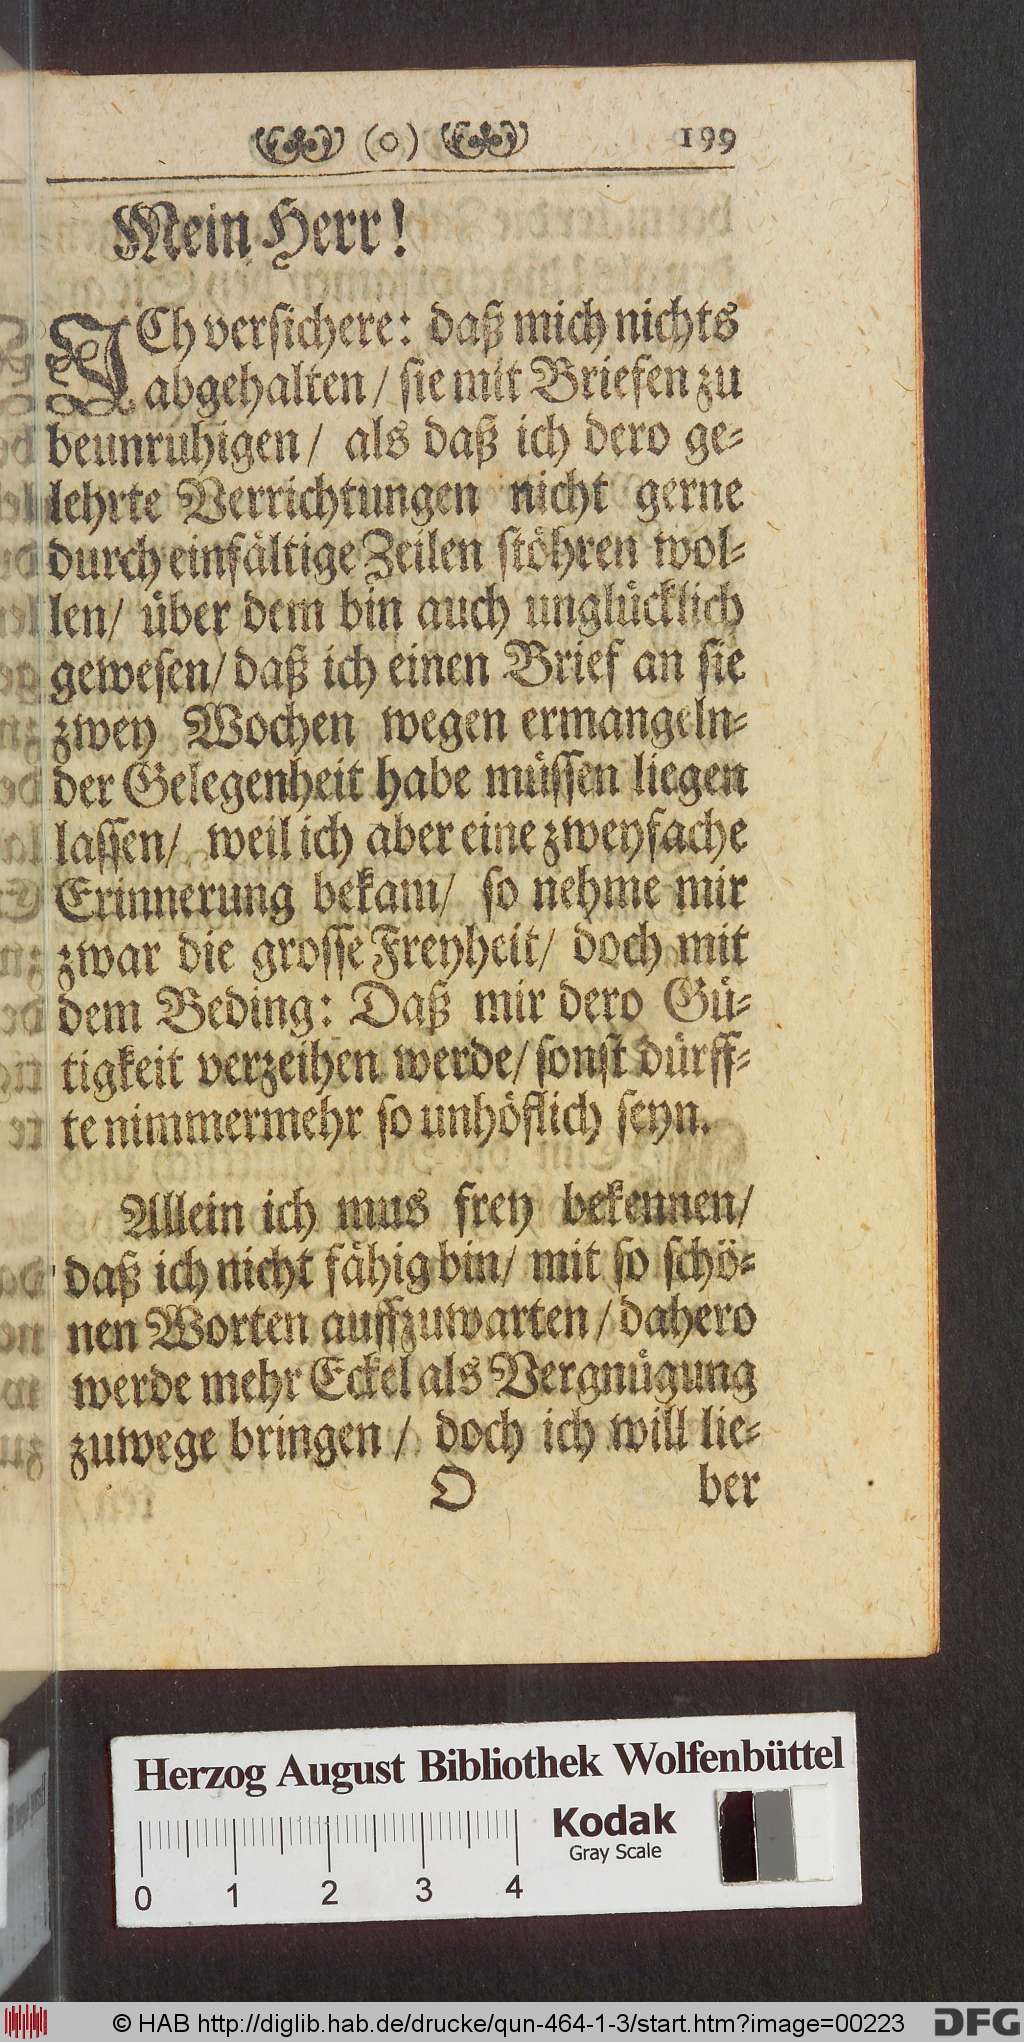 (o) 199
Mein Herr!
ICh versichere: daß mich nichts
abgehalten / sie mit Briefen zu
beunruhigen / als daß ich dero ge-
lehrte Verrichtungen nicht gerne
durch einfältige Zeilen stöhren wol-
len / über dem bin auch unglücklich
gewesen / daß ich einen Brief an sie
zwey Wochen wegen ermangeln-
der Gelegenheit habe müssen liegen
lassen / weil ich aber eine zweyfache
Erinnerung bekam / so nehme mir
zwar die grosse Freyheit / doch mit
dem Beding: Daß mir dero Gü-
tigkeit verzeihen werde / sonst dürff-
te nimmermehr so unhöflich seyn.
Allein ich mus frey bekennen /
daß ich nicht fähig bin / mit so schö-
nen Worten auffzuwarten / dahero
werde mehr Eckel als Vergnügung
zuwege bringen / doch ich will lie-
O ber
Herzog August Bibliothek Wolfenbüttel
Kodak
Gray Scale
0 1 2 3 4
© HAB http://diglib.hab.de/drucke/qun-464-1-3/start.htm?image=00223
DFG